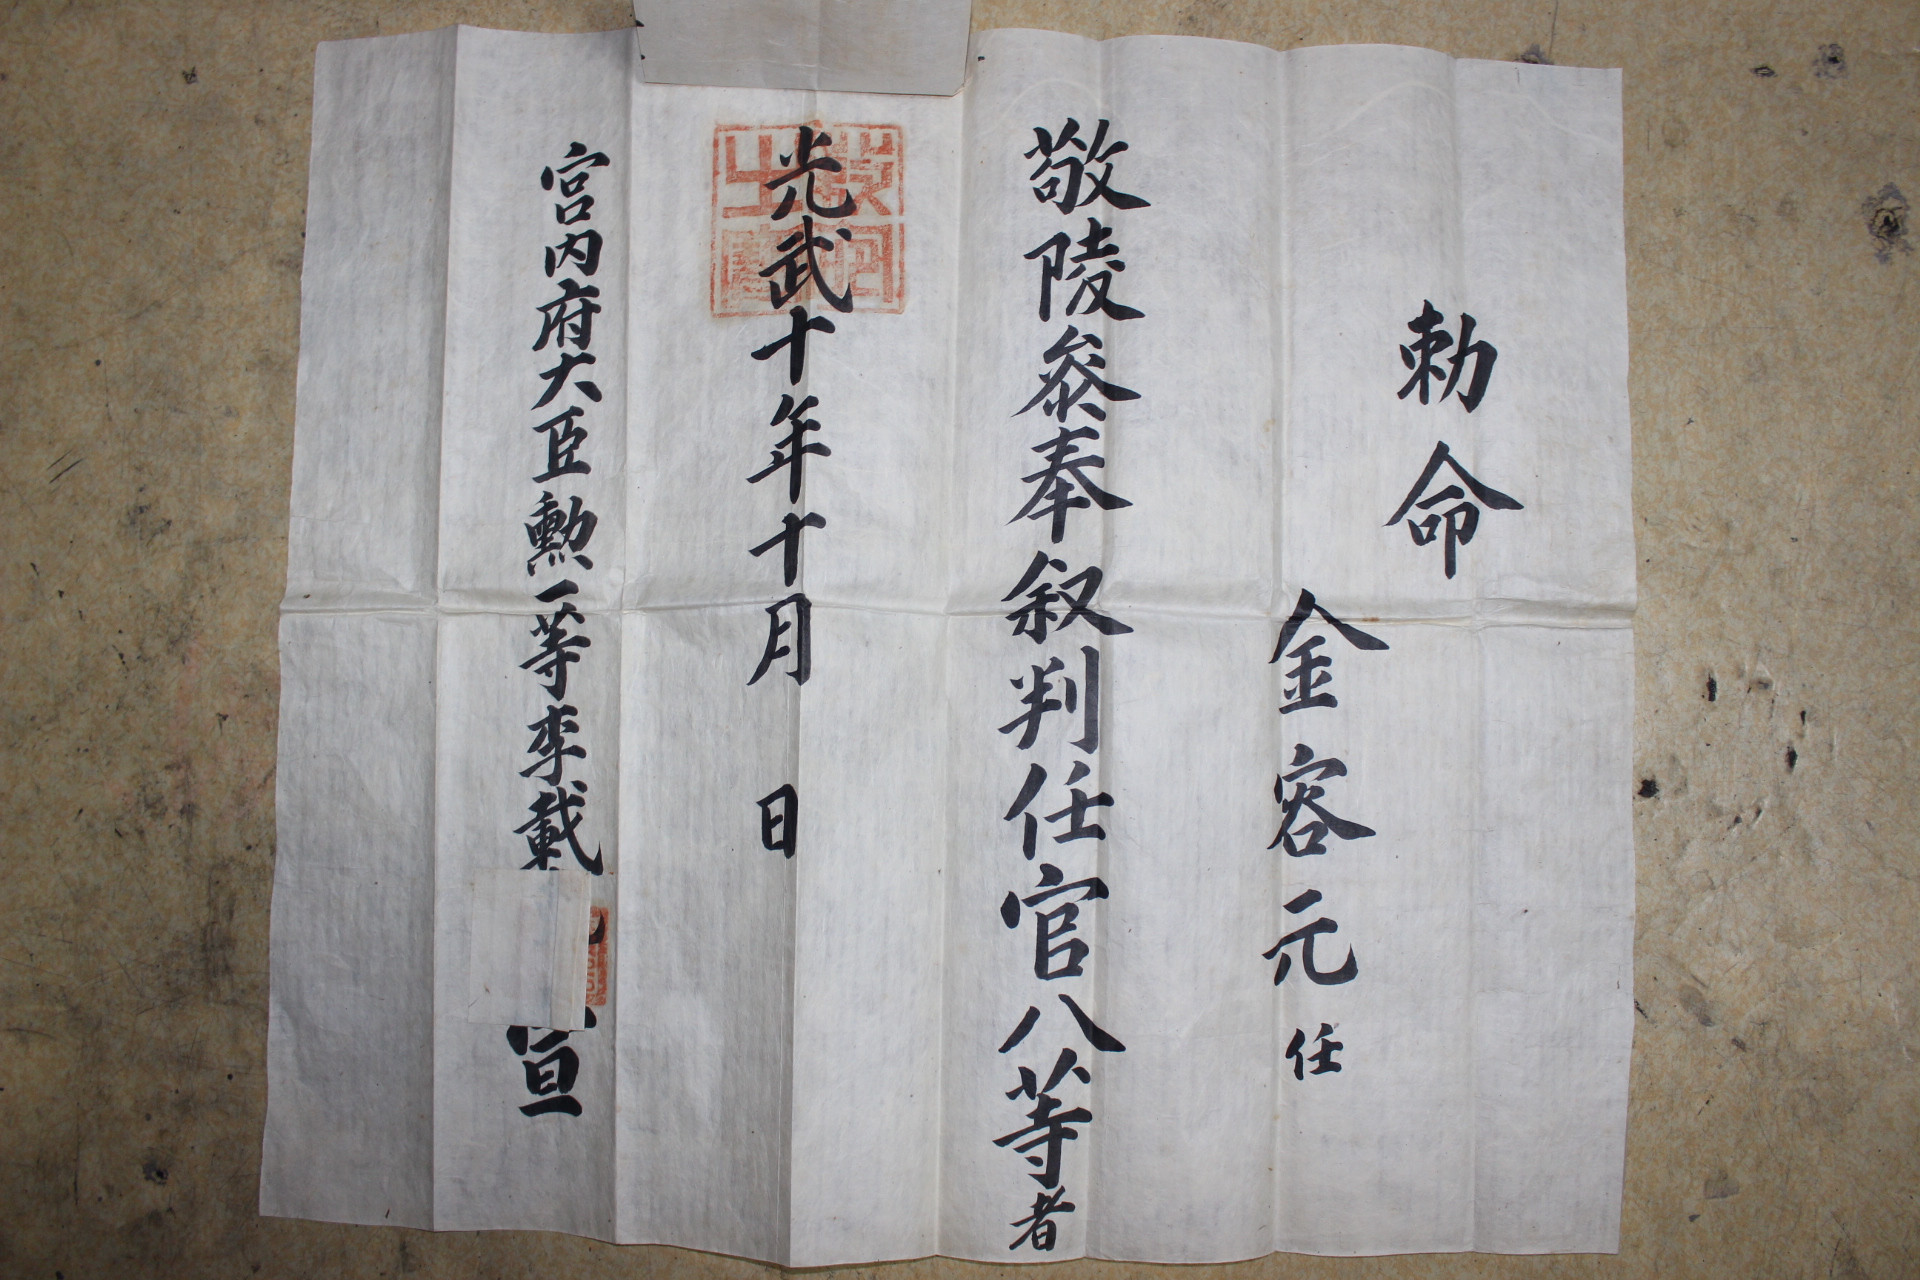 勅命
金容元任
敬陵叅奉叙判任官八等者
光武十年十月 日
宮內府大臣勳一等李載 宣